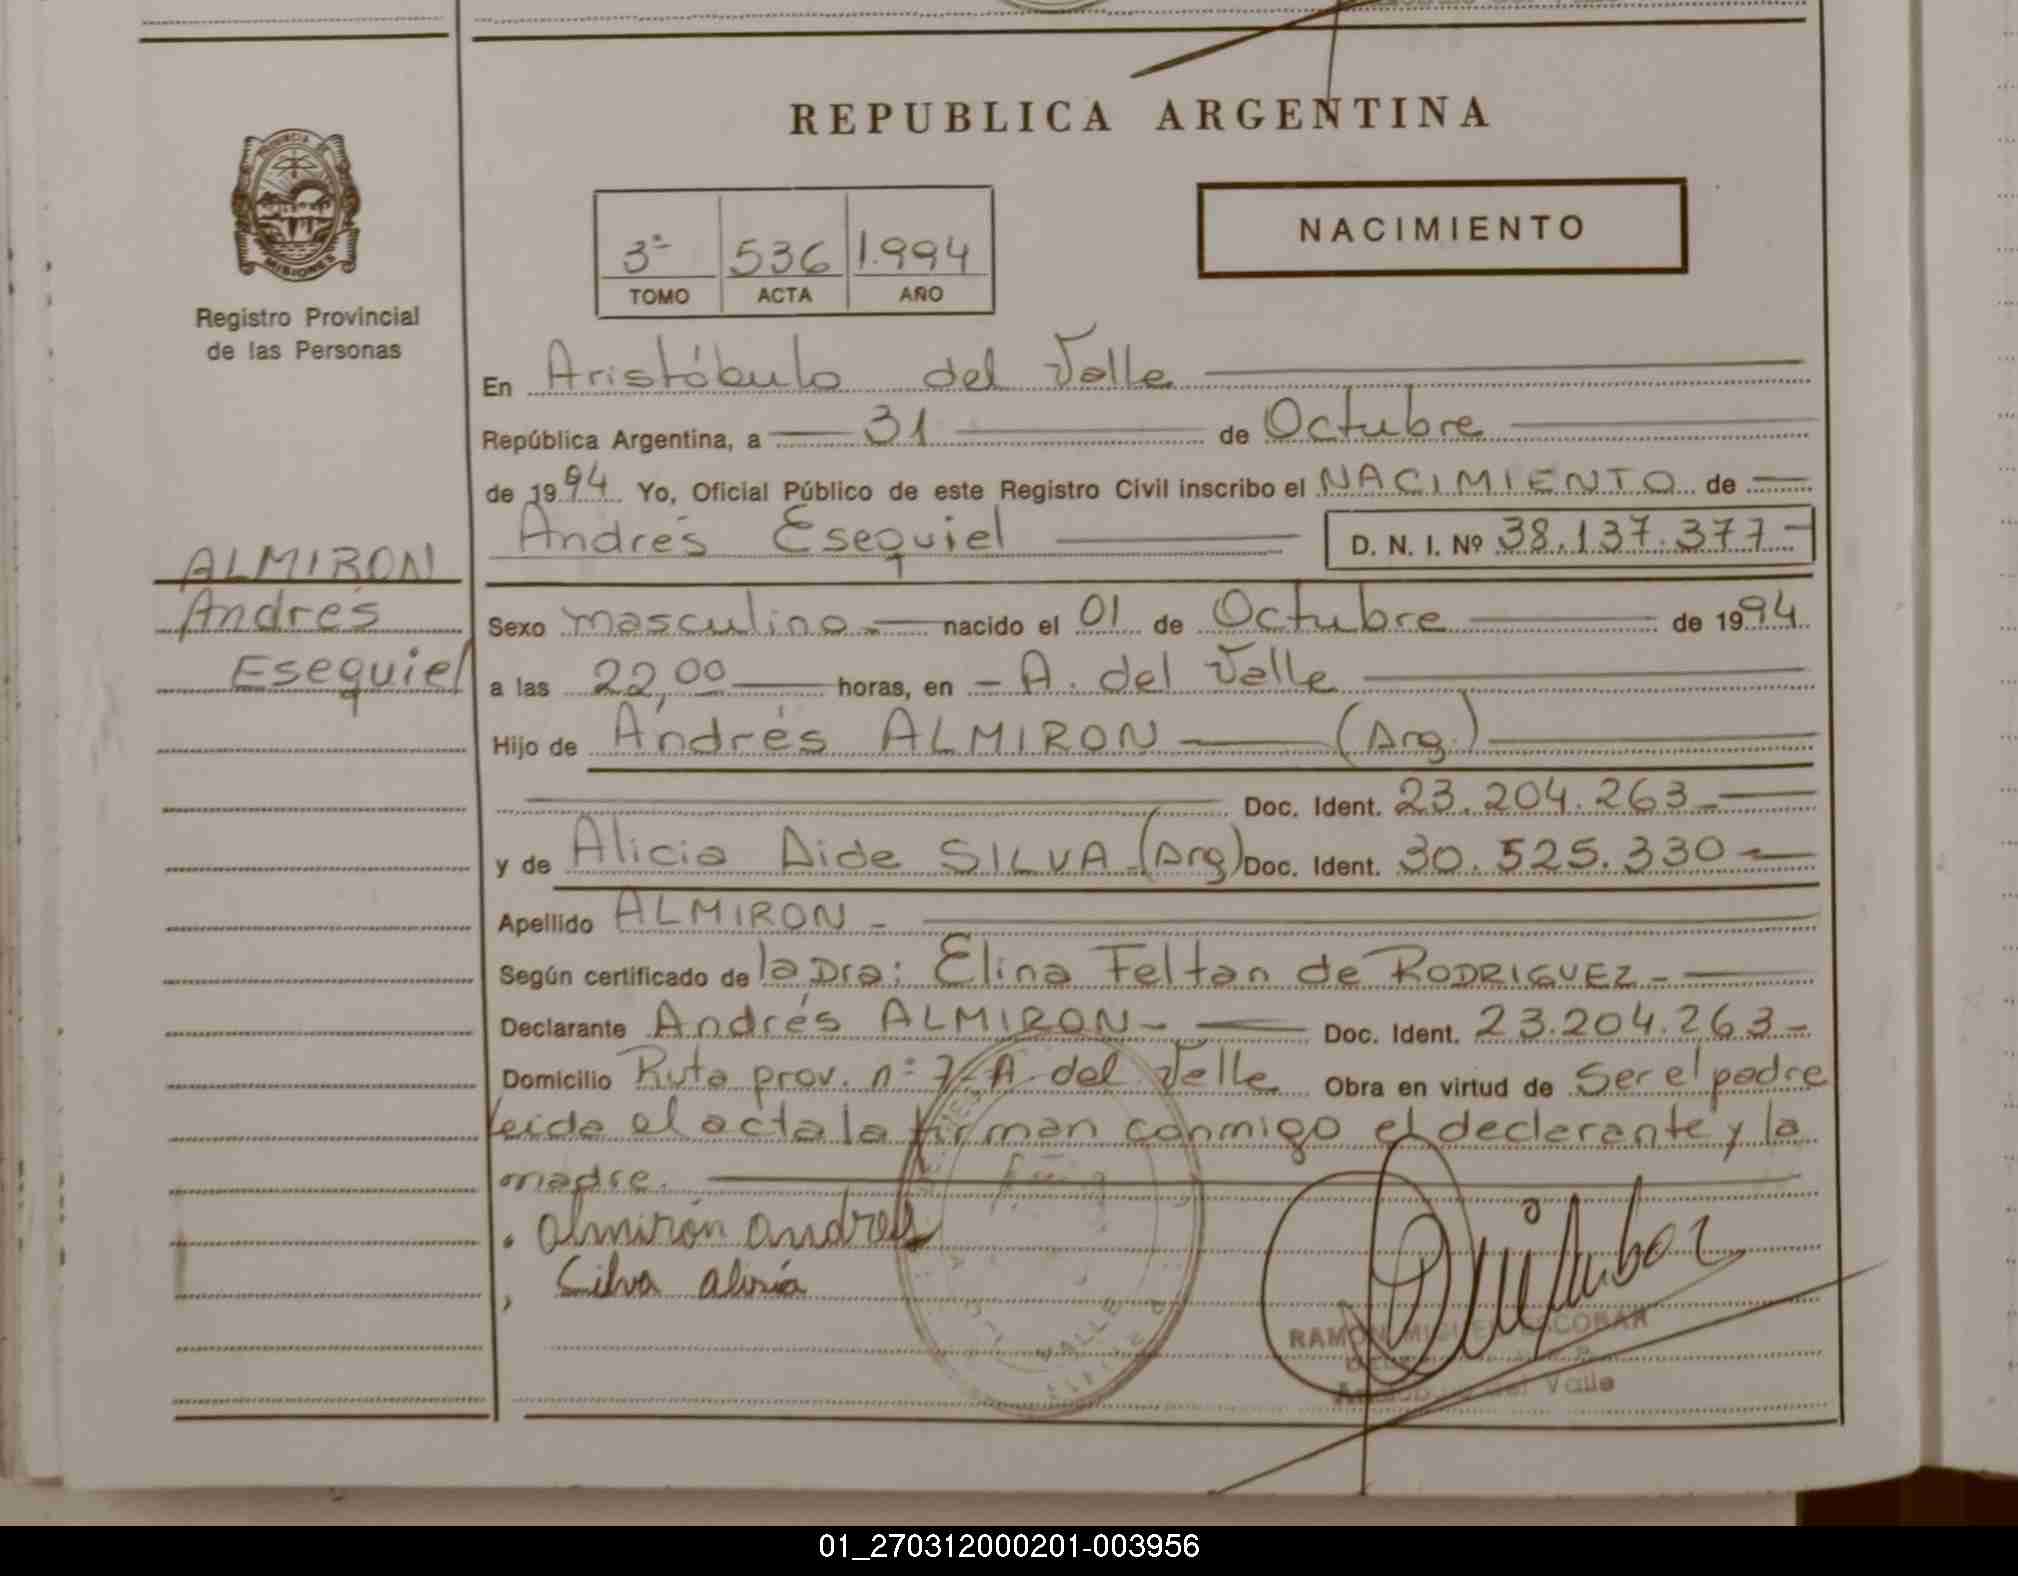 REPUBLICA ARGENTINA
PROVINCIA DE
MISIONES
Registro Provincial
de las Personas
3º 536 1.994
TOMO ACTA AÑO
NACIMIENTO
En Aristóbulo del Valle
República Argentina, a 31 de Octubre
de 1994 Yo, Oficial Público de este Registro Civil inscribo el NACIMIENTO de
Andrés Esequiel D. N. I. Nº 38.137.377-
ALMIRON
Andrés
Esequiel
Sexo masculino.- nacido el 01 de Octubre de 1994
a las 22,00 horas, en - A. del Valle
Hijo de Andrés ALMIRON (Arg.)
Doc. Ident. 23.204.263-
y de Alicia Aide SILVA-(Arg) Doc. Ident. 30.525.330-
Apellido ALMIRON-
Según certificado de la Dra: Elina Feltan de RODRIGUEZ-
Declarante Andrés ALMIRON- Doc. Ident. 23.204.263-
Domicilio Ruta prov. nº 7-A. del Valle Obra en virtud de Ser el padre
leída el acta la firman conmigo el declarante y la
madre.
Almirón Andres
Silva Alisia
VALLE
RAMON MIGUEL ESCOBAR
del Valle
01_270312000201-003956